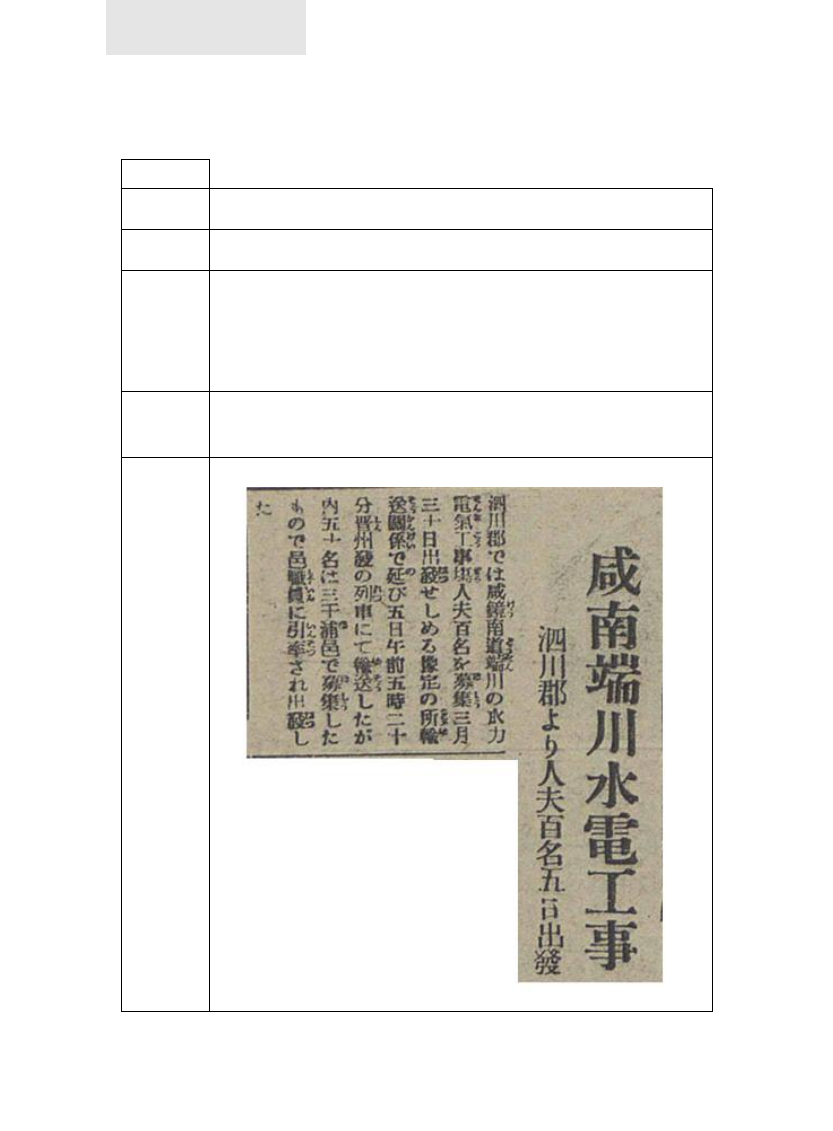 咸南端川水電工事
泗川郡より人夫百名五日出發
泗川郡では咸鏡南道端川の水力
電氣工事場人夫百名を募集三月
三十日出發せしめる豫定の所輸
送關係で延び五日午前五時二十
分晋州發の列車にて輸送したが
內五十名は三千浦邑で募集した
もので邑職員に引率され出發し
た